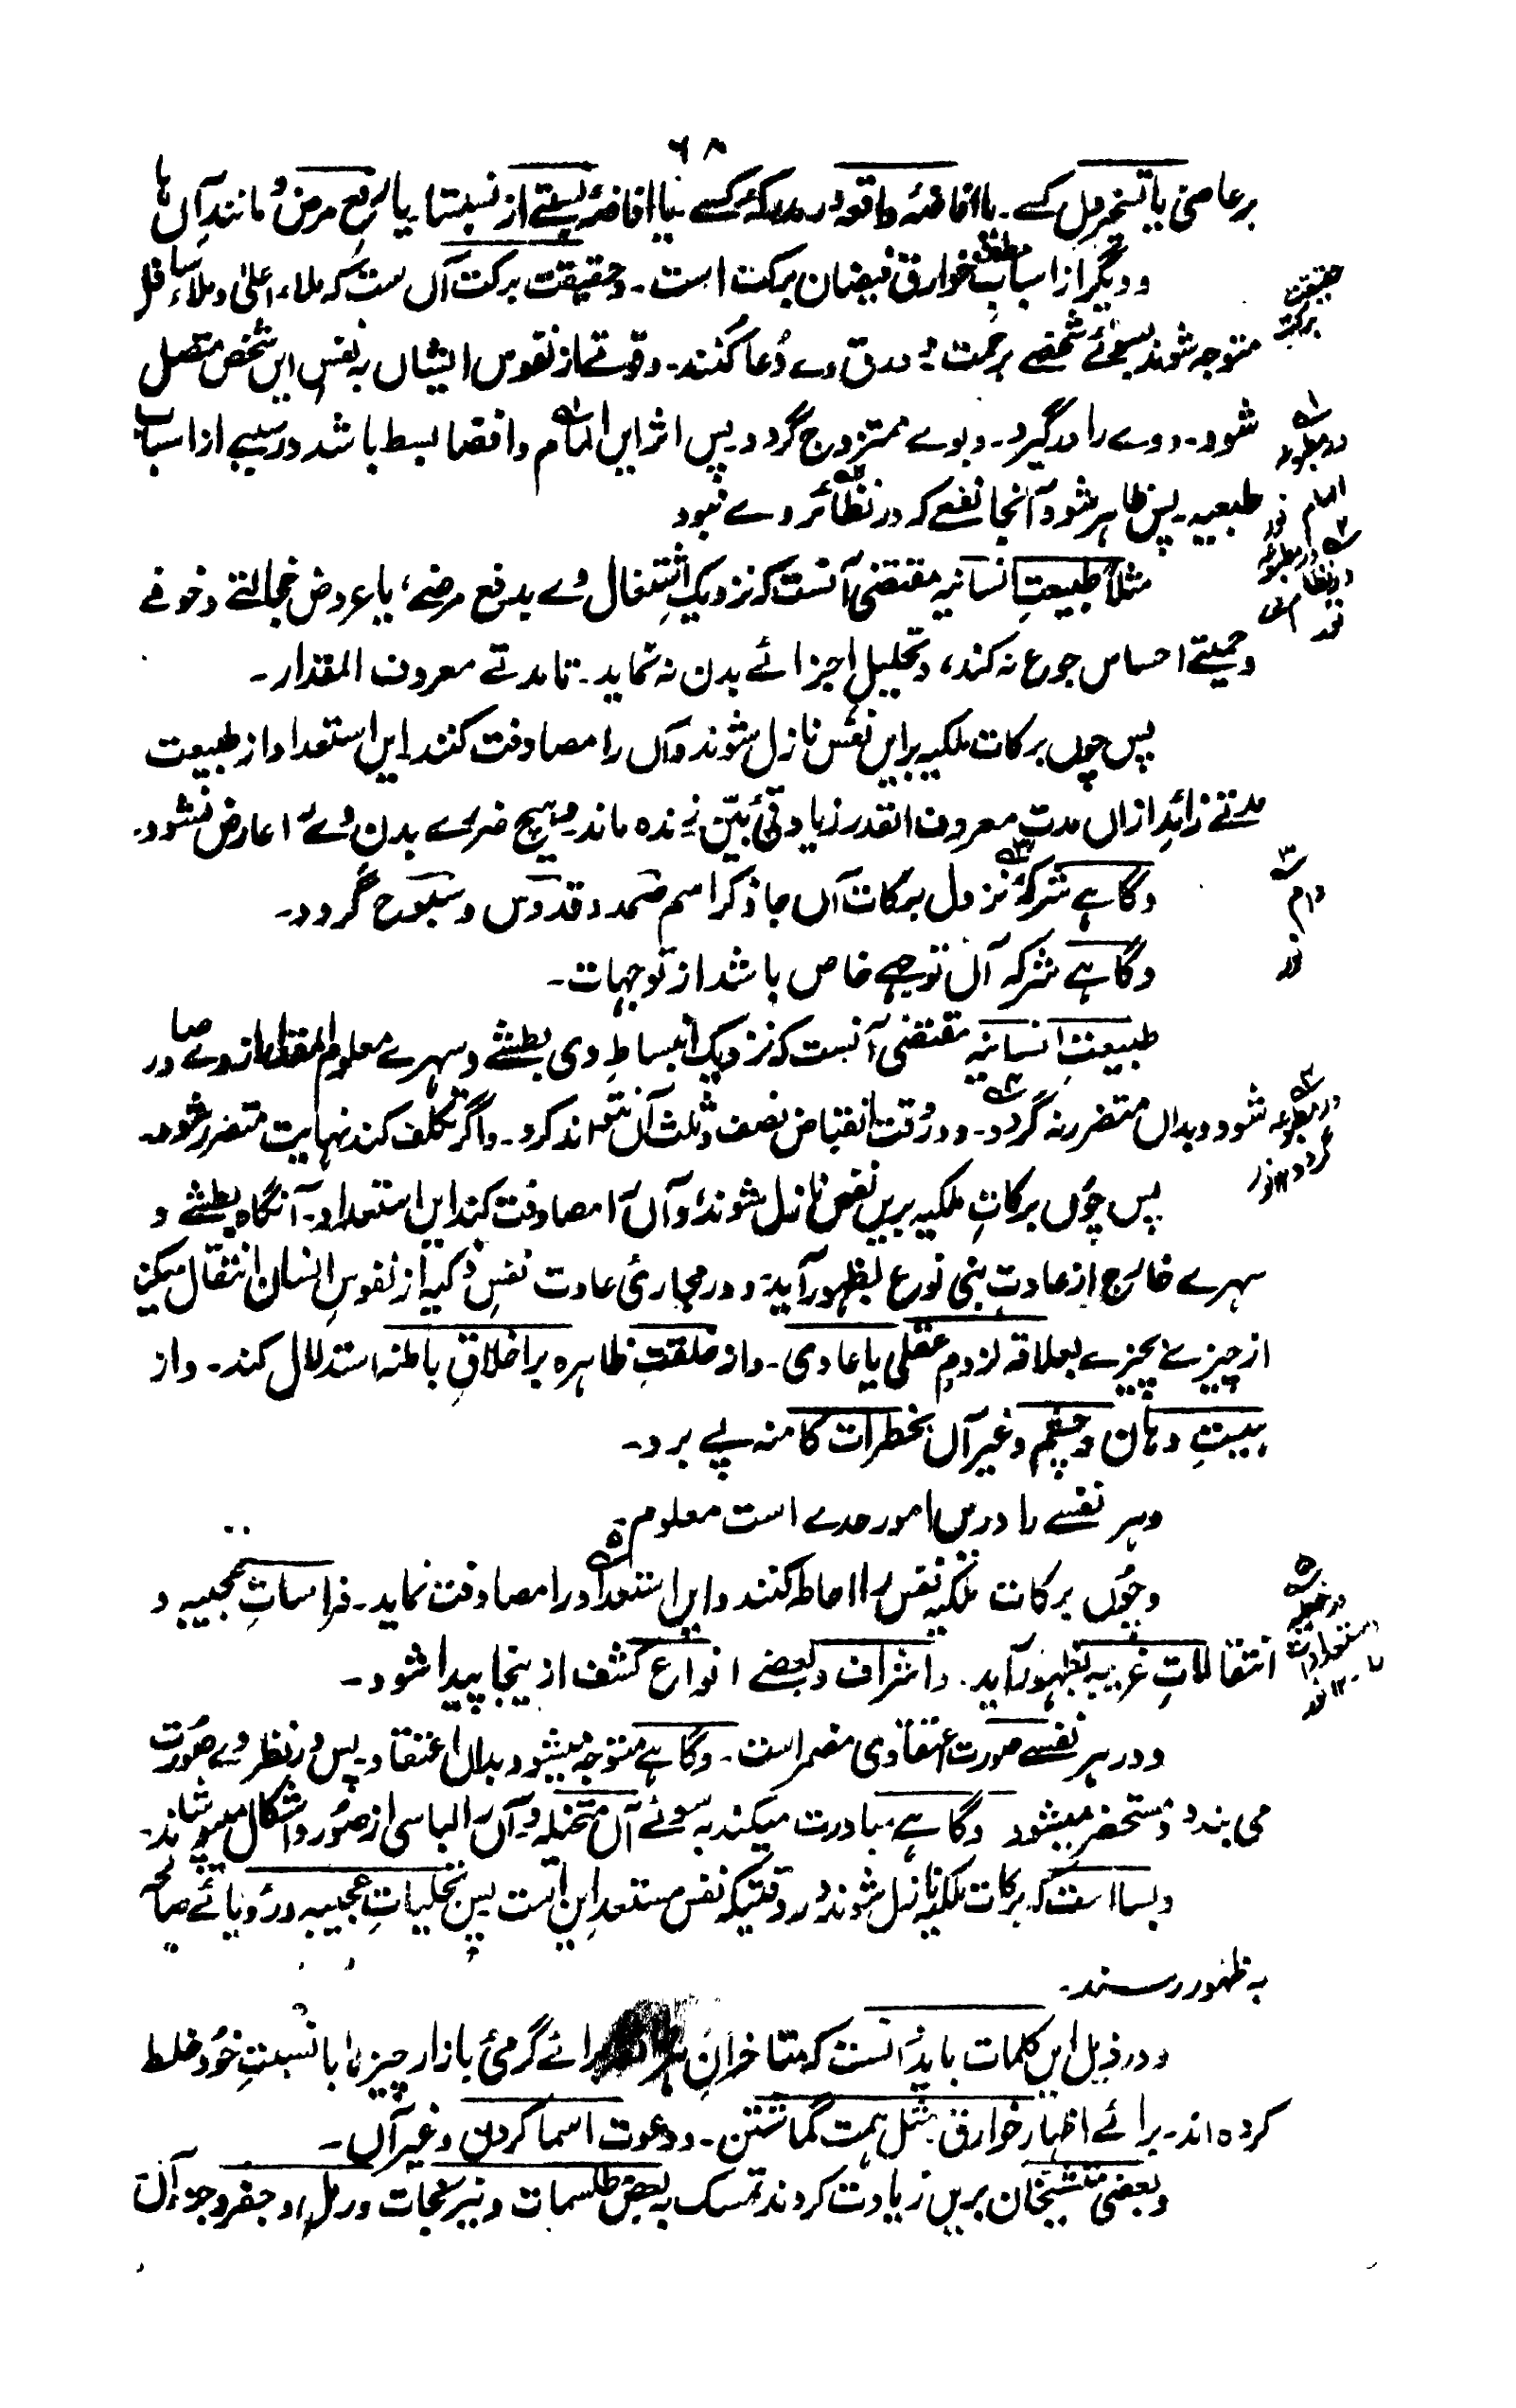 ۶۸
بر عاصی یا تسخیر دل کسے۔ یا افاضۂ واقعہ در مدرکۂ کسے یا افاضۂ نسبتے از نسبتہا یا رفع مرض و مانند آں ہا
و دیگر از اسباب خوارق فیضان برکت است۔ و حقیقت برکت آں ست کہ ملاء اعلیٰ و ملاء سافل
حقیقت برکت
متوجہ شوند بسوئے شخصے برحمت و در حق وے دُعا کنند۔ و قوتے از نفوس ایشاں بہ نفس ایں شخص متصل
شود۔ و وے را در گیرد۔ و بوے ممتزج گردد پس اثر ایں الہام و افضا بسط باشد در سببے از اسباب
طبعیہ۔ پس ظاہر شود آنجا نفعے کہ در نظائر وے نبود
مثلاً طبیعتِ انسانیہ مقتضی آنست کہ نزدیک اشتغال وے بدفع مرضے، یا عروض خجالتے و خوفے
و حمیتے احساس جوع نہ کند، و تحلیل اجزائے بدن نہ نماید۔ تا مدتے معروف المقدار۔
پس چوں برکات ملکیہ بر ایں نفس نازل شوند و آں را مصادفت کنند ایں استعداد از طبیعت
مدتے زائد از اں مدتِ معروف القدر زیادتیٔ بیّن زندہ ماند و ہیچ ضررے بدن وے را عارض نشود۔
و گاہے شرکۂ نزول برکات آں جا ذکر اسم صمد و قدوس و سبوح گردد۔
و گاہے شرکہ آں توجہے خاص باشد از توجہات۔
طبیعتِ انسانیہ مقتضی آنست کہ نزدیک انبساطِ وی بطشے و سہرے معلوم المقدار از وے صادر
شود و بداں متضرر نہ گردد۔ و در وقت انقباض نصف و ثلث آں نتواند کرد۔ و اگر تکلف کند نہایت متضرر شود۔
پس چُوں برکاتِ ملکیہ بریں نفس نازل شوند و آں را مصادفت کند ایں استعداد۔ آنگاہ بطشے و
سہرے خارج از عادتِ بنی نوع بظہور آید۔ و در مجاریٔ عادت نفسِ ذکیہ از نفوسِ انسان انتقال میکند
از چیزے بچیزے بعلاقہ لزومِ عقلی یا عادی۔ و از خلقتِ ظاہرہ بر اخلاقِ باطنہ استدلال کند۔ و از
ہیئتِ دہان و چشم و غیر آں بخطرات کامنہ پے برد۔
و ہر نفسے را دریں امور حدے است معلوم
و چُوں برکات ملکیہ نفس را احاطہ کنند و ایں استعداد را مصادفت نماید۔ فراساتِ عجیبہ و
انتقالاتِ غریبہ بظہور آید۔ و اشراف و بعضے انواع کشف ازینجا پیدا شود۔
و در ہر نفسے صورت اعتقادی مضمر است۔ و گاہے متوجہ میشود بداں اعتقاد۔ پس در نظر وے صُورت
می بندد و مستحضر میشود و گاہے مبادرت میکند بہ سوئے آں متخیلہ و آں را لباسی از صُور و اشکال میپوشاند۔
و بسا است کہ برکات ملکیہ نازل شوند در وقتیکہ نفس مستعدِ ایں است پس تجلیاتِ عجیبہ و رؤیائے صالحہ
بہ ظہور رسند۔
و در ذیل ایں کلمات باید دانست کہ متاخرانِ برائے گرمیٔ بازار چیزہا با نسبتِ خُود خلط
کردہ اند۔ برائے اظہار خوارق مثل ہمت گماشتن۔ و دعوت اسما کردن و غیر آں۔
و بعضی متشیخان بریں زیادت کردند تمسک بہ بعض طلسمات و نیرنجات و رمل و جفر و جز آں